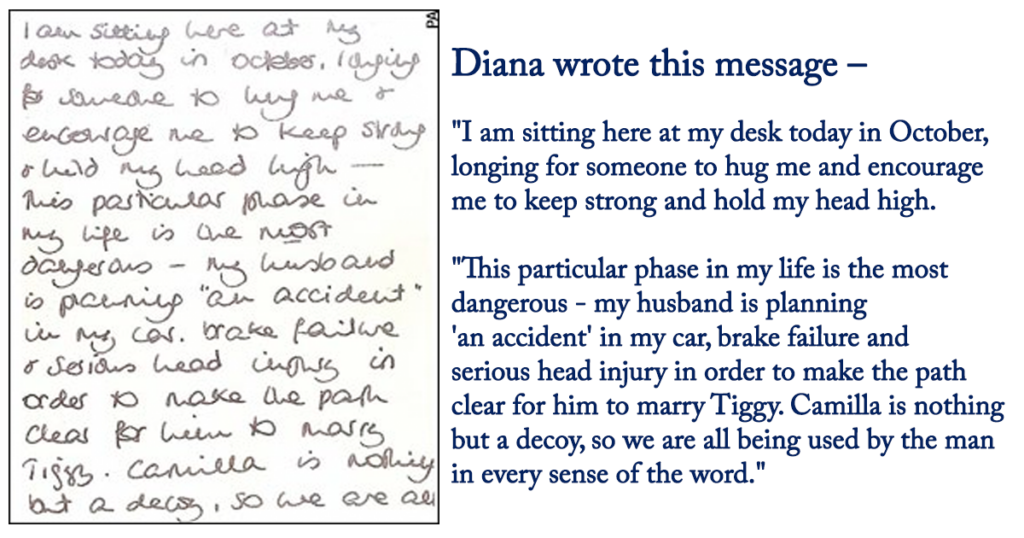 PA
I am sitting here at my
desk today in october, longing
for someone to hug me &
encourage me to keep strong
& hold my head high —
This particular phase in
my life is the most
dangerous – my husband
is planning "an accident"
in my car. brake failure
& serious head injury in
order to make the path
clear for him to marry
Tiggy. Camilla is nothing
but a decoy, so we are all
Diana wrote this message –
"I am sitting here at my desk today in October,
longing for someone to hug me and encourage
me to keep strong and hold my head high.
"This particular phase in my life is the most
dangerous - my husband is planning
'an accident' in my car, brake failure and
serious head injury in order to make the path
clear for him to marry Tiggy. Camilla is nothing
but a decoy, so we are all being used by the man
in every sense of the word."